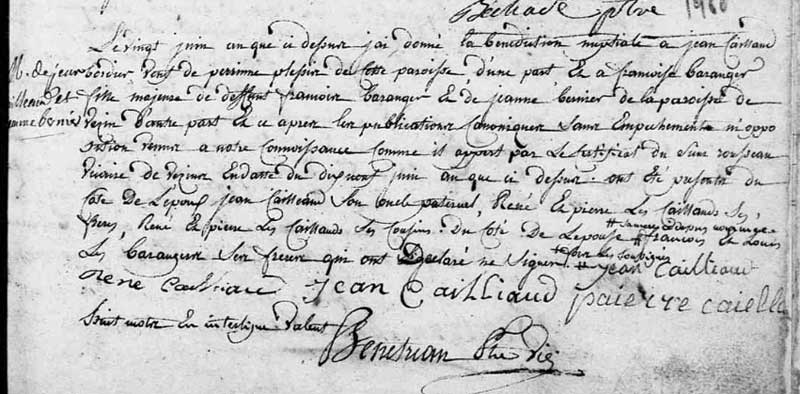 Béchade ptre
Le vingt juin an que ci dessus j'ai donné la benediction nuptiale a jean Caillaud
M. de jean bordier, veuf de perrinne plessis de cette paroisse d'une part Et a francoise baranger
et fille majeure de deffunt francois baranger Et de jeanne bernier de la paroisse de
vezin d'autre part Et ce apres les publications Canoniques Sans Empechement n'y oppo
sition venue a notre Connoissance Comme il appert par Le Certificat du Sieur rousseau
vicaire de vezins En datte du dixneuf juin an que ci dessus. ont été presents du
Coté De L'époux jean Cailleaud Son oncle paternel, René Et pierre Les Caillauds Ses
freres, René Et pierre Les Caillauds Ses Cousins. Du Coté De L'epouse francois Et Louis
Les barangers Ses freres qui ont Declaré ne Signer # fors les Soussignes # jean cailleaut
rene cailliau jean Cailliaud paierre caiella
huit mots En interligne Valent
Benetrian ptre Vic